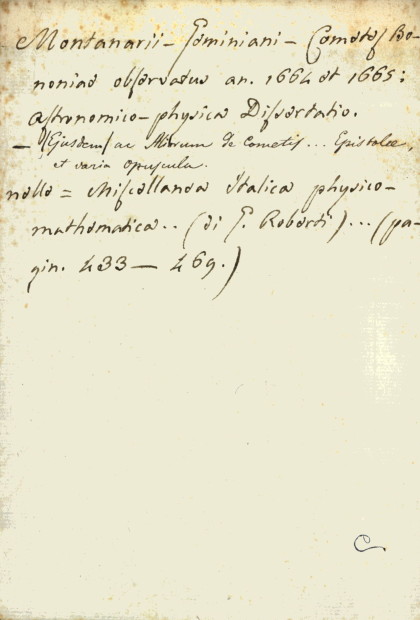 Montanarii - Geminiani - Cometes Bo-
noniae observatus an. 1664 et 1665:
astronomico-physica Dissertatio.
- (Ejusdem) ac Aliorum de Cometis... Epistolae,
et varia opuscula.
nelle = Miscellanea Italica physico-
mathematica.. (di G. Roberti)... (pa-
gin. 433 — 469.)
C